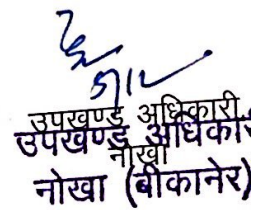 उपखण्ड अधिकारी
उपखण्ड अधिकार
नोखा
नोखा (बीकानेर)